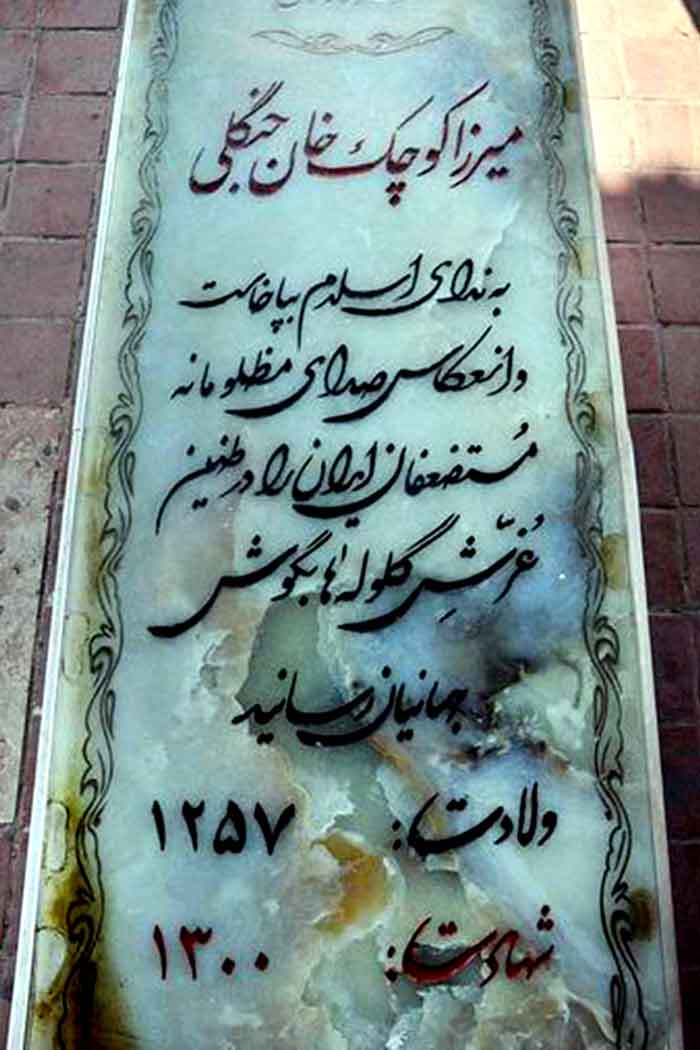 میرزا کوچک خان جنگلی
به ندای اسلام بپاخاست
و انعکاس صدای مظلومانه
مُستضعفان ایران را در طنین
غُرّشِ گلوله‌ها بگوش
جهانیان رسانید
ولادت: ۱۲۵۷
شهادت: ۱۳۰۰